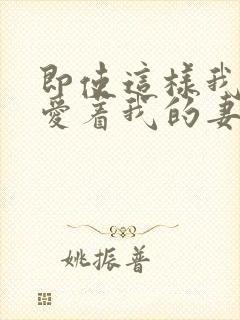 即使這樣我
愛着我的妻
姚振普